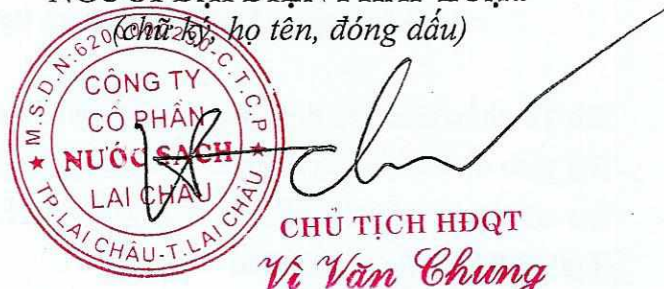 (chữ ký, họ tên, đóng dấu)
CÔNG TY
CỔ PHẦN
NƯỚC SẠCH
LAI CHÂU
TP.LAI CHÂU-T.LAI CHÂU
CHỦ TỊCH HĐQT
Vì Văn Chung